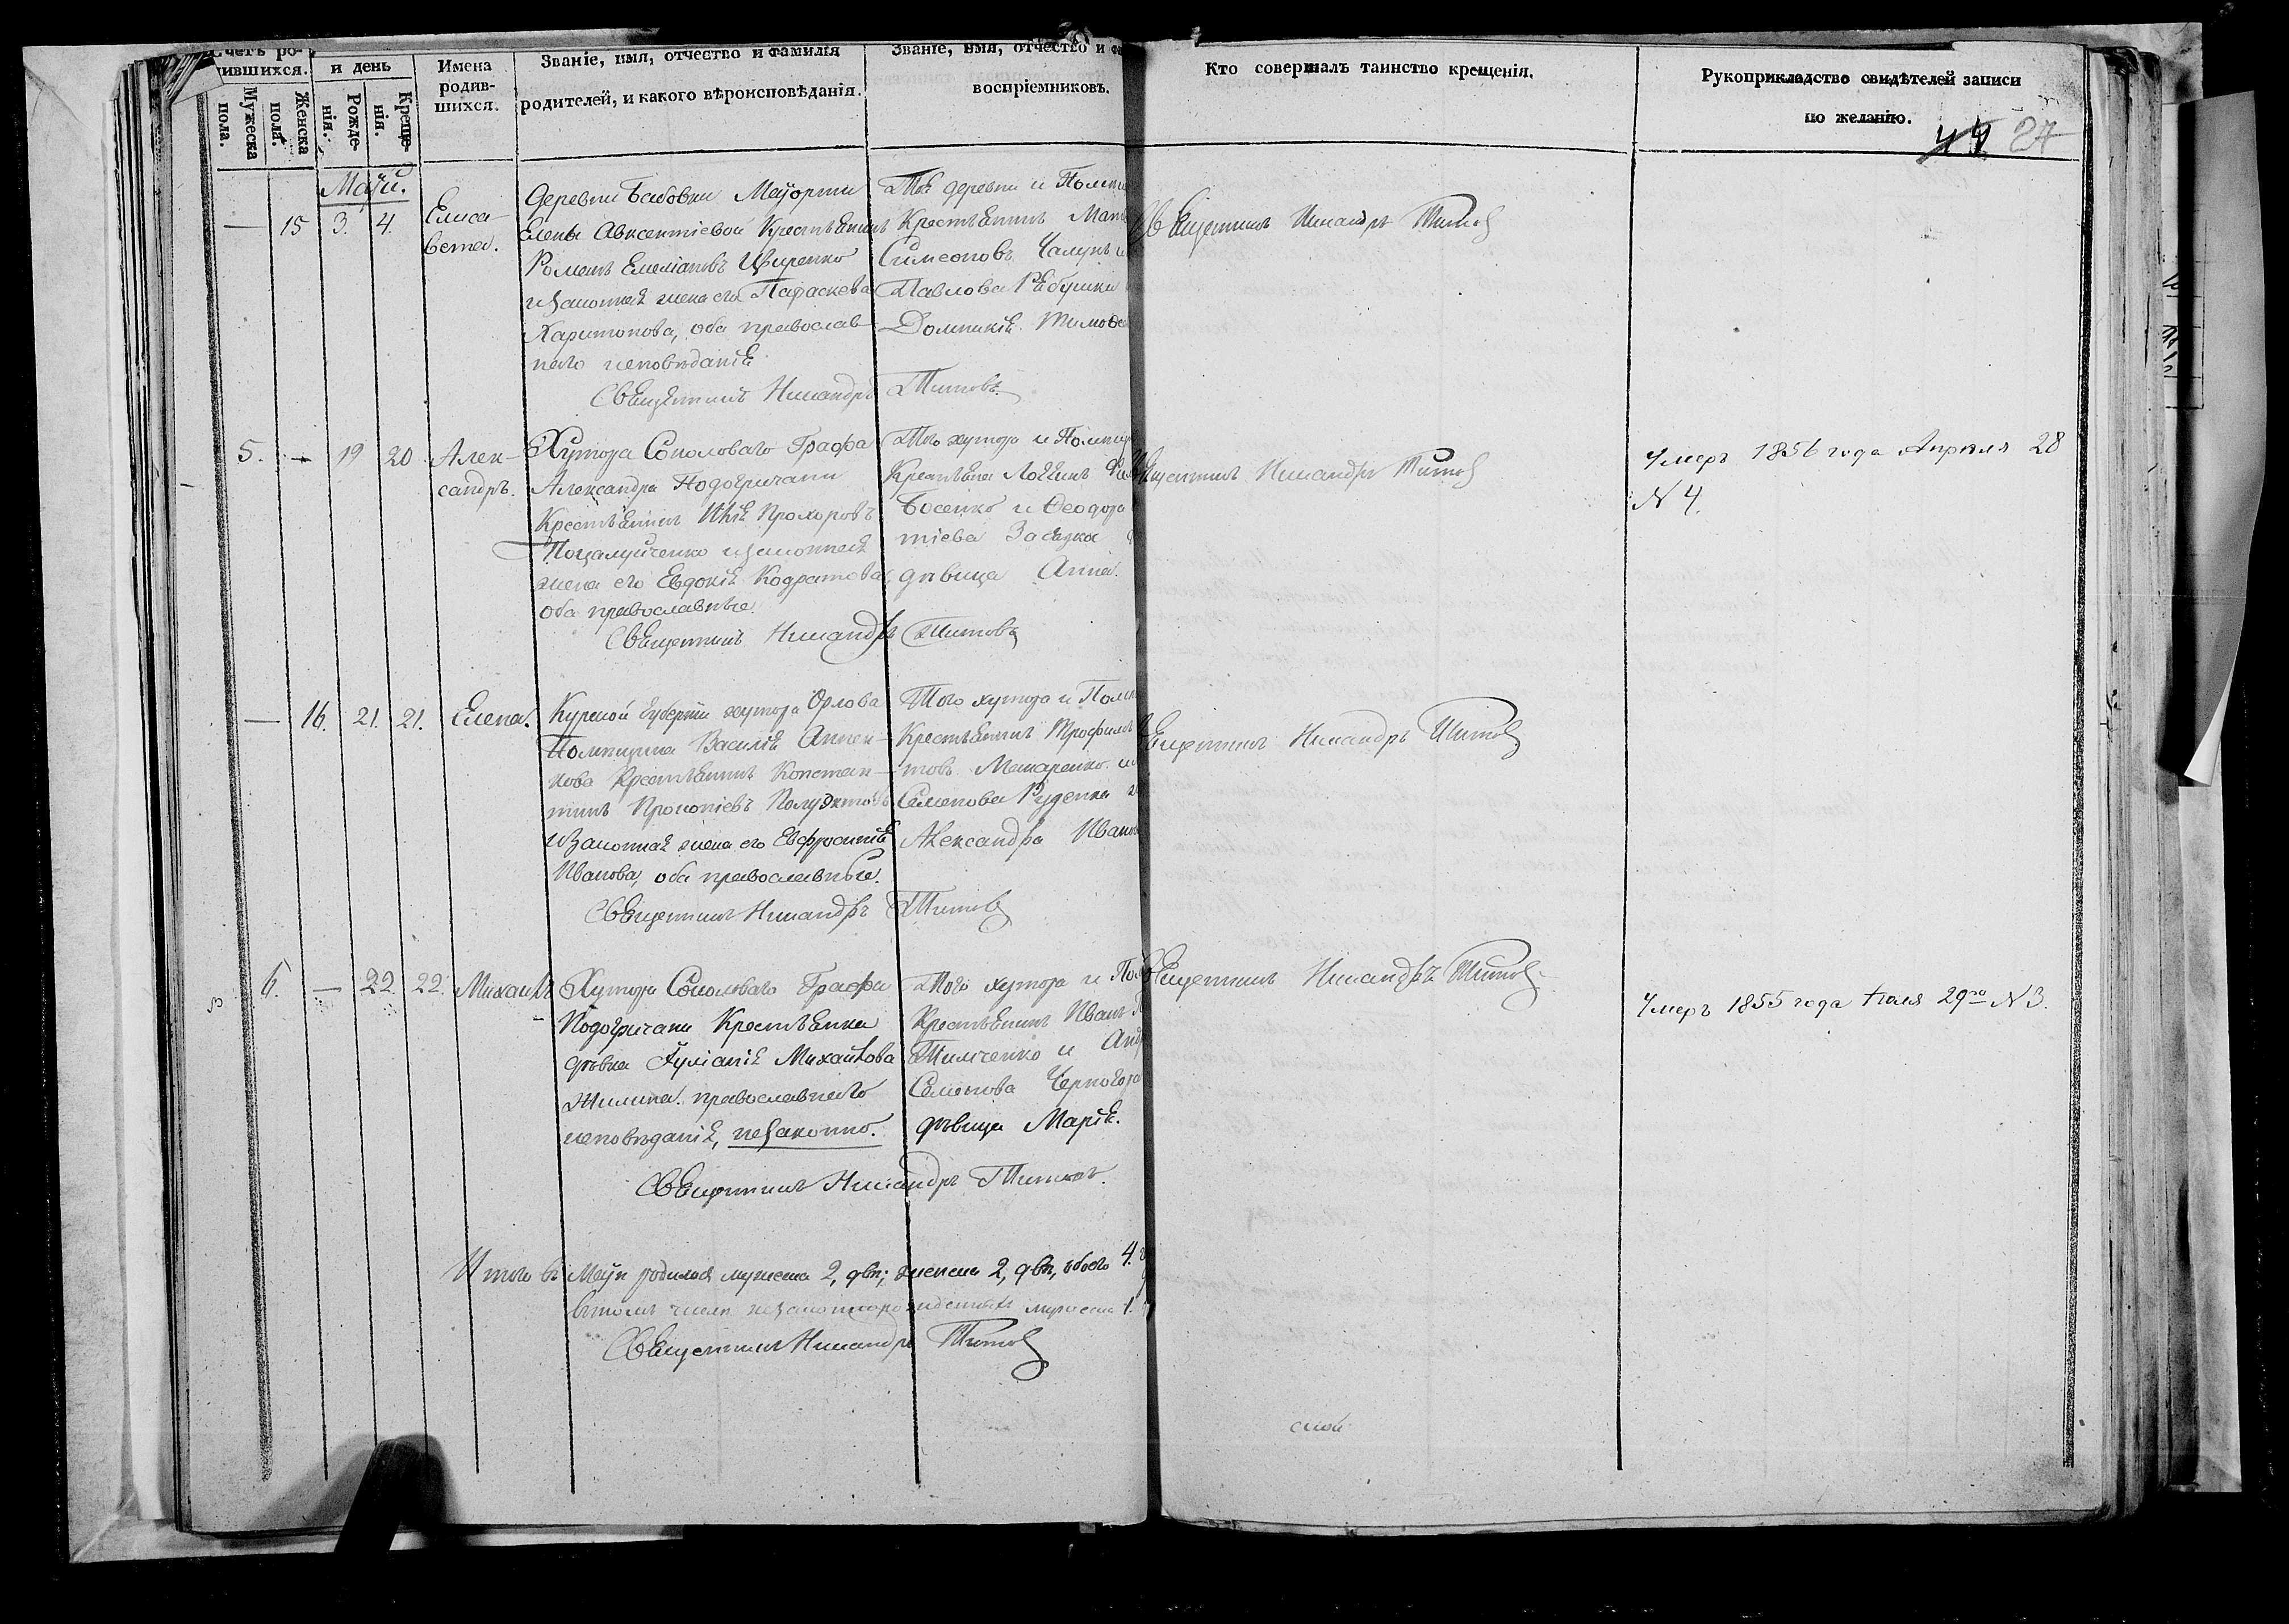 Счетъ ро-
дившихся.
и день
Мужеска
пола.
Женска
пола.
Рожде-
нія.
Креще-
нія.
Имена
родив-
шихся.
Званіе, имя, отчество и фамилія
родителей, и какого вѣроисповѣданія.
Званіе, имя, отчество и
воспріемниковъ.
Кто совершалъ таинство крещенія.
Рукоприкладство свидѣтелей записи
по желанію.
27
Маiй.
— 15 3. 4. Елиса-
вета.
Деревни Бабовки Маiорши
Елены Авксентіевой Крестьянинъ
Романъ Емеліановъ Цыренко
и законная жена его Параскева
Харитонова, оба православ-
наго исповѣданія
Той деревни и
Крестьянинъ
Симеоновъ
Павлова
Домникія
Священникъ Никандръ Титовъ
Священникъ Никандръ Титовъ
5. — 19 20 Алек-
сандръ.
Хутора Соколоваго Графа
Александра Подогричани
Крестьянинъ Илія Прохоровъ
Поцалуйченко и законная
жена его Евдокія Кодратова
оба православные.
Того хутора и
Крестьяне Логгинъ
Босенко и Феодора
тіева Засядка
дѣвица Анна.
Священникъ Никандръ Титовъ
Священникъ Никандръ Титовъ
Умеръ 1856 года Апрѣля 28
N 4.
— 16. 21. 21. Елена.
Курской Губерніи хутора Орлова
Помѣщика Василія Аннен-
кова Крестьянинъ Констан-
тинъ Прокопіевъ Полуэктовъ
и законная жена его Евфросинія
Иванова, оба православные.
Того хутора и
Крестьянинъ Трофимъ
товъ Макаренко и
Семенова Руденка
Александра
Священникъ Никандръ Титовъ
Священникъ Никандръ Титовъ
6. — 22. 22. Михаилъ
Хутора Соколоваго Графа
Подогричани Крестьянка
дѣвка Іуліанія Михайлова
Жилина православнаго
исповѣданія, незаконно.
Того хутора и
Крестьянинъ Иванъ
Тимченко и
Семенова
дѣвица Марія.
Священникъ Никандръ Титовъ
Священникъ Никандръ Титовъ.
Умеръ 1855 года Іюля 29го N 3.
Итого въ Маiѣ родилося мужеска 2, два; женска 2, два, обоего 4.
втомъ числѣ незаконнорожденныхъ мужеска 1.
Священникъ Никандръ Титовъ